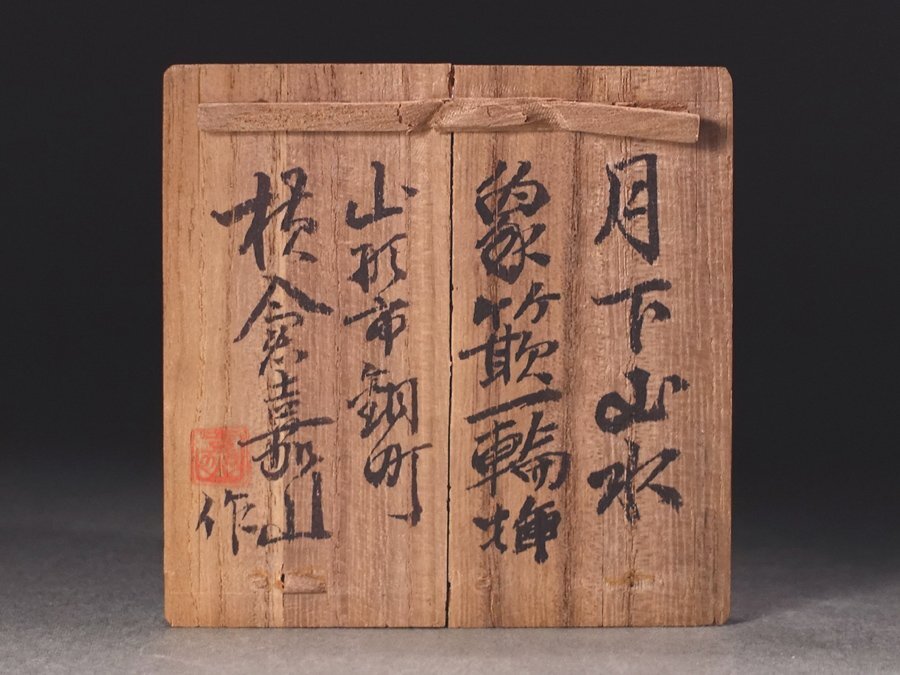 月下山水
象篏一輪挿
山形市銅町
横倉嘉山
作